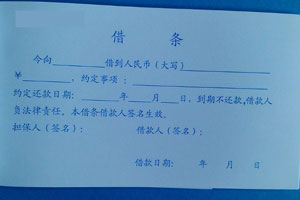 借 条
今向__________借到人民币（大写）__________________
￥__________，约定事项：__________________
约定还款日期：________年____月____日，到期不还款，借款人
负法律责任．本借条借款人签名生效．
担保人（签名）： 借款人（签名）：
借款日期： 年 月 日